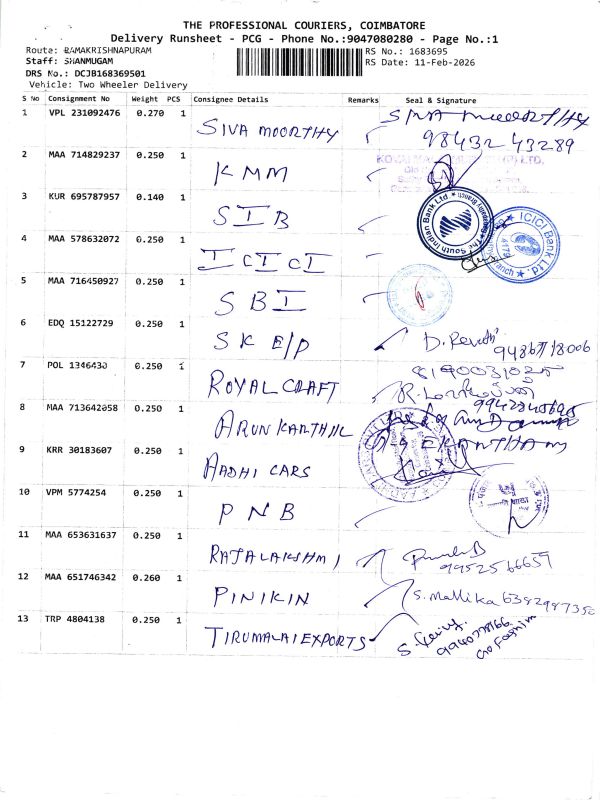 THE PROFESSIONAL COURIERS, COIMBATORE
Delivery Runsheet - PCG - Phone No.:9047080280 - Page No.:1
Route: RAMAKRISHNAPURAM
Staff: SHANMUGAM
DRS No.: DCJB168369501
Vehicle: Two Wheeler Delivery
RS No.: 1683695
RS Date: 11-Feb-2026
S No Consignment No Weight PCS Consignee Details Remarks Seal & Signature
1 VPL 231092476 0.270 1 SIVA MOORTHY SIVA MOORTHY
98432 43289
2 MAA 714829237 0.250 1 KMM
3 KUR 695787957 0.140 1 SIB
The South Indian Bank Ltd.
4 MAA 578632072 0.250 1 ICICI
ICICI Bank Ltd.
5 MAA 716450927 0.250 1 SBI
6 EDQ 15122729 0.250 1 SK E/P D. Revathi
7 POL 1346430 0.250 1 ROYAL CRAFT
8190031025
8 MAA 713642058 0.250 1 ARUN KARTHIK
9 KRR 30183607 0.250 1 AADHI CARS
10 VPM 5774254 0.250 1 PNB
11 MAA 653631637 0.250 1 RAJALAKSHMI
12 MAA 651746342 0.260 1 PINIKIN S. Mallika 6382987350
13 TRP 4804138 0.250 1 TIRUMALAI EXPORTS